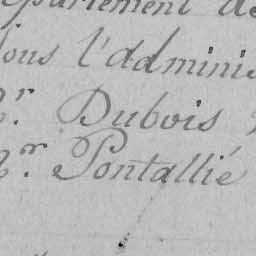 partement de
sous l'adminis
Mr. Dubois
Mr. Pontallié